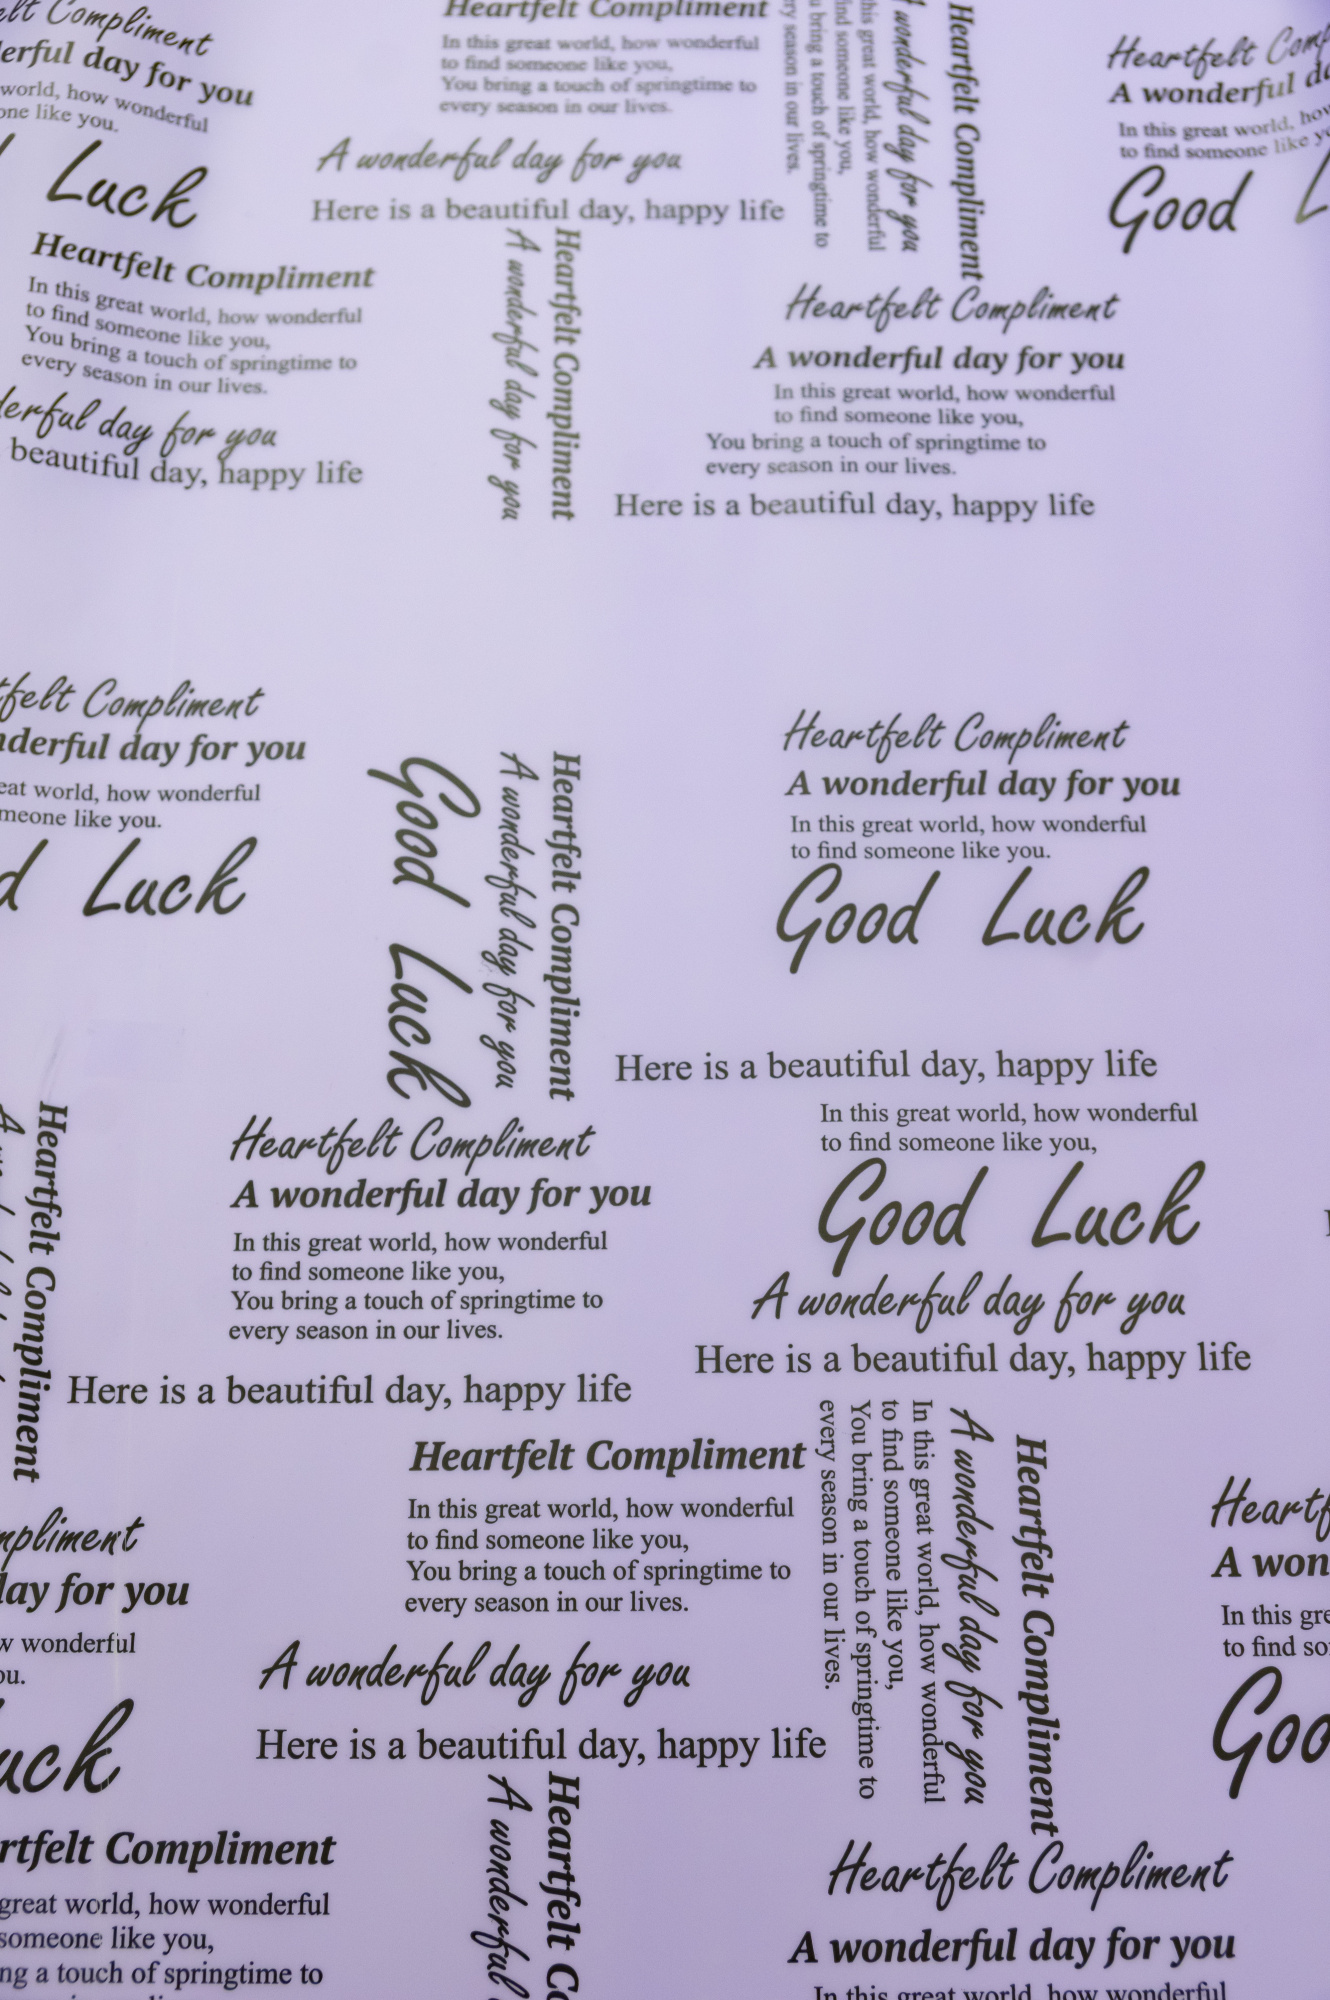 Compliment
day for you
world, how wonderful
like you.
Luck
Heartfelt Compliment
In this great world, how wonderful
to find someone like you,
You bring a touch of springtime to
every season in our lives.
day for you
beautiful day, happy life
Heartfelt Compliment
In this great world, how wonderful
to find someone like you,
You bring a touch of springtime to
every season in our lives.
A wonderful day for you
Here is a beautiful day, happy life
Heartfelt Compliment
A wonderful day for you
Heartfelt Compliment
wonderful day for you
this great world, how wonderful
find someone like you,
bring a touch of springtime to
season in our lives.
Heartfelt
A wonderful
In this great world,
to find someone like
Good
Heartfelt Compliment
A wonderful day for you
In this great world, how wonderful
to find someone like you,
You bring a touch of springtime to
every season in our lives.
Here is a beautiful day, happy life
Compliment
day for you
world, how wonderful
like you.
Luck
Heartfelt Compliment
A wonderful day for you
Good Luck
Heartfelt Compliment
A wonderful day for you
In this great world, how wonderful
to find someone like you.
Good Luck
Here is a beautiful day, happy life
In this great world, how wonderful
to find someone like you,
Good Luck
A wonderful day for you
Here is a beautiful day, happy life
Heartfelt Compliment
A
Heartfelt Compliment
A wonderful day for you
In this great world, how wonderful
to find someone like you,
You bring a touch of springtime to
every season in our lives.
Here is a beautiful day, happy life
Heartfelt Compliment
In this great world, how wonderful
to find someone like you,
You bring a touch of springtime to
every season in our lives.
A wonderful day for you
Here is a beautiful day, happy life
Heartfelt Compliment
A wonderful day for you
In this great world, how wonderful
to find someone like you,
You bring a touch of springtime to
every season in our lives.
for you
wonderful
A
In this
to find
Compliment
great world, how wonderful
someone like you,
a touch of springtime to
Heartfelt
A wonderful
Heartfelt Compliment
A wonderful day for you
In this great world, how wonderful